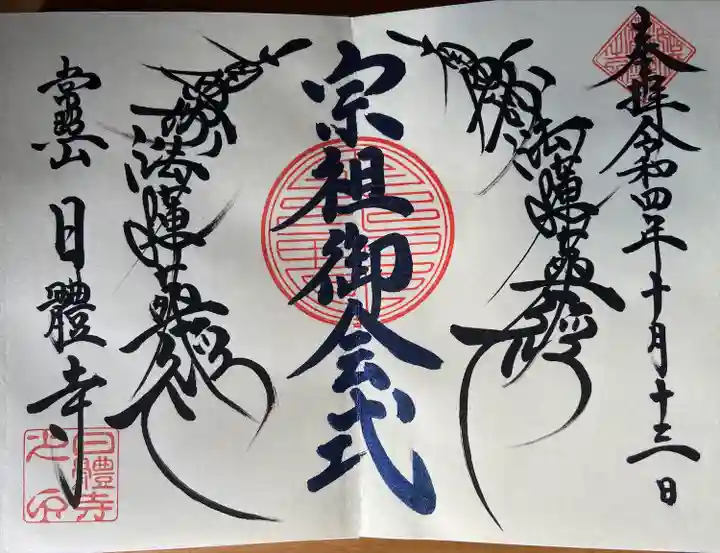 奉拝 令和四年十月十三日
南無妙法蓮華経
宗祖御会式
南無妙法蓮華経
常照山 日體寺
日體寺之印